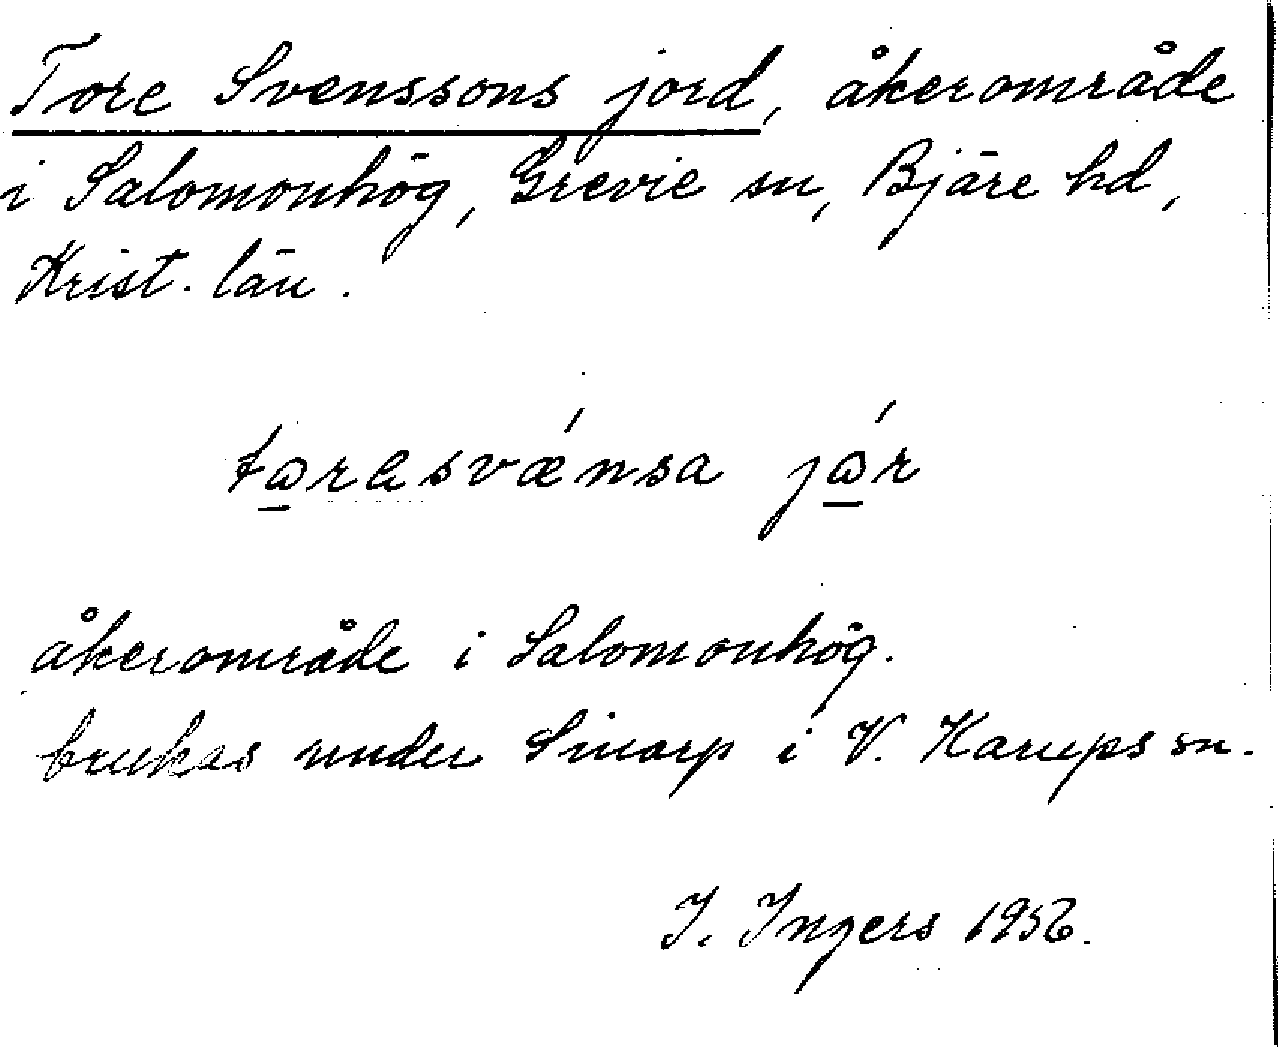 Tore Svenssons jord, åkerområde
i Salomonhög, Grevie sn, Bjäre hd,
Krist. län.
åkerområde i Salomonhög.
brukas under Sinarp i V. Karups sn.
I. Ingers 1956.